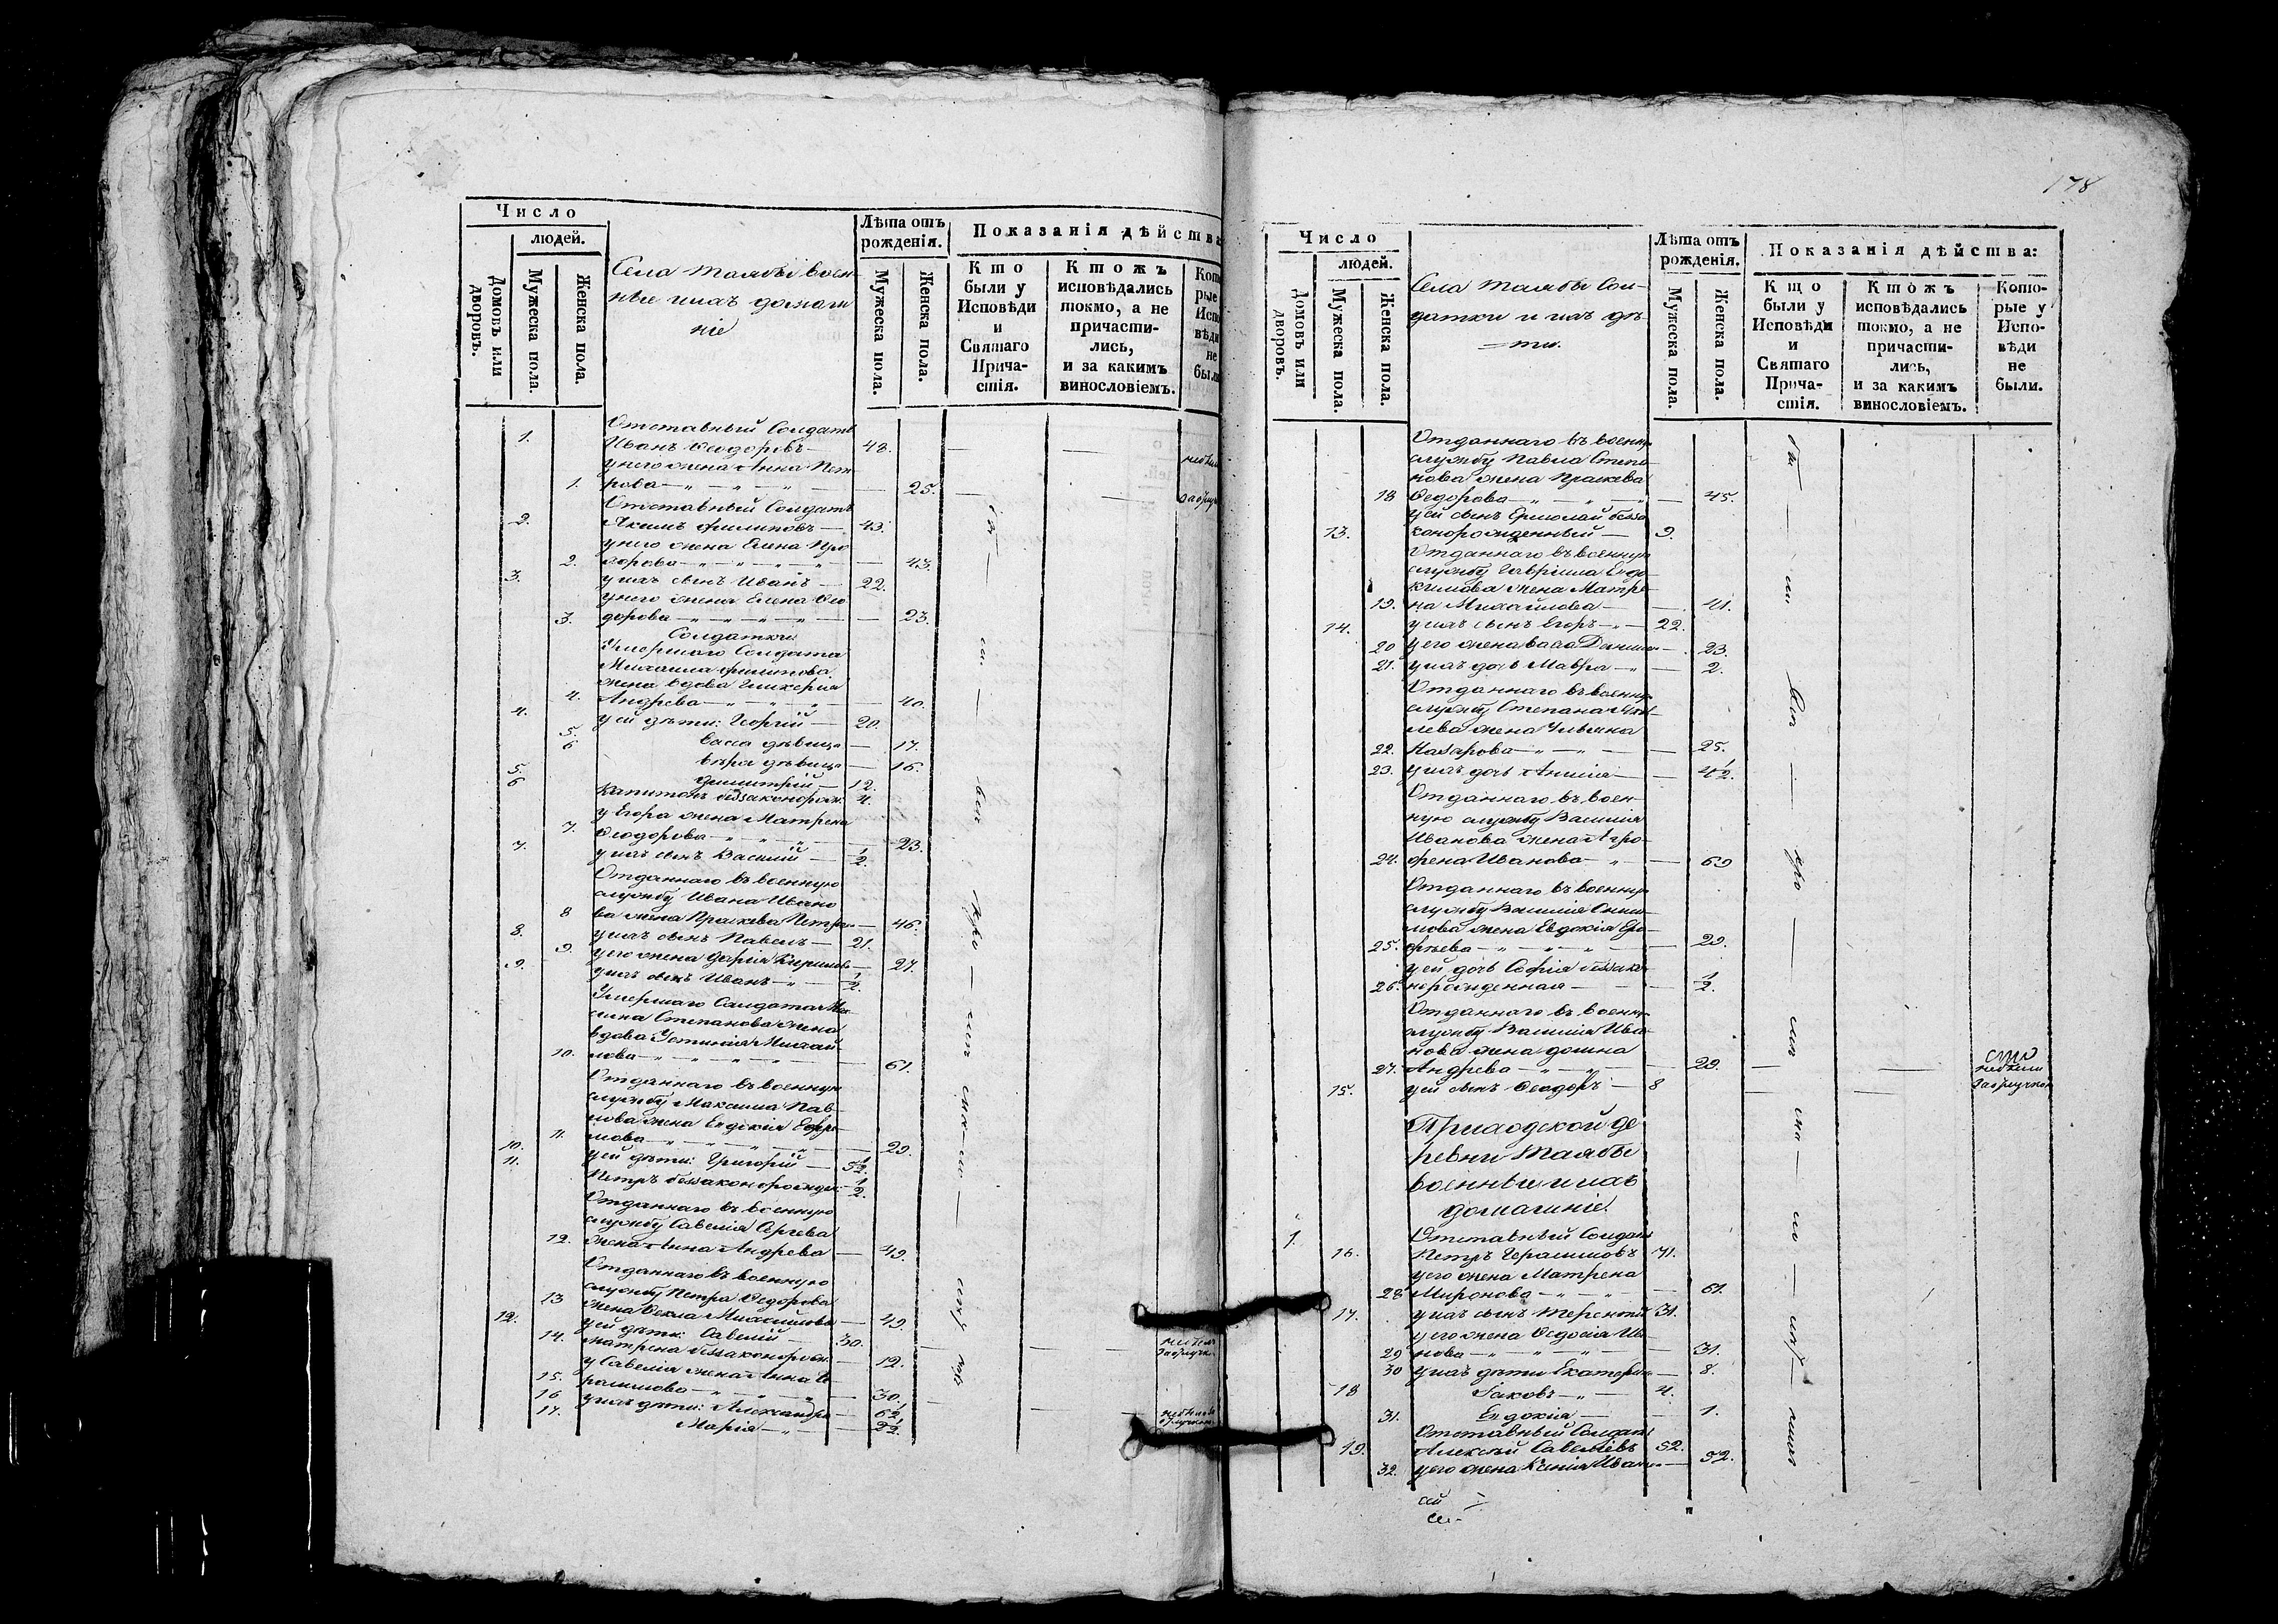 178
Число
людей.
Домовъ или дворовъ.
Мужеска пола.
Женска пола.
Села Таябы воен
ные и ихъ домаш
ніе
Лѣта отъ
рожденія.
Мужеска пола.
Женска пола.
Показанія дѣйства
Кто
были у
Исповѣди
и
Святаго
Прича-
стія.
Ктожъ
исповѣдались
токмо, а не
причасти-
лись,
и за какимъ
винословіемъ.
Кото
рые
Испо
вѣди
не
были
Отставный Солдатъ
1. Иванъ Ѳеодоровъ 48.
у него жена Анна Пет
1. рова 25.
Отставный Солдатъ
2. Акимъ Филиповъ 43.
у него жена Елена Про
2. хорова 43.
3. у ихъ сынъ Иванъ 22.
у него жена Елена Ѳео
3. дорова 23.
Солдатки
Умершаго Солдата
Михаила Филипова
жена вдова Гликерія
4. Андреева 40.
4. у ей дѣти: Георгій 20.
5. Васса дѣвица 17.
6 Вѣра дѣвица 16.
5. Димитрій 12.
6 Капитонъ беззаконорож. 4.
у Егора жена Матрена
7. Ѳеодорова 23.
7. у ихъ сынъ Василій 1/2.
Отданнаго въ военную
службу Ивана Ивано
8 ва жена Праскева Петро 46.
8. у ихъ сынъ Павелъ 21.
9. у его жена Дарія Кирилова 27.
9. у ихъ сынъ Иванъ 1/2.
Умершаго Солдата
Степанова жена
вдова Устинія Михай
10. лова 61.
Отданнаго въ военную
службу Максима Пав-
лова жена Евдокія Ефре
11. мова 29.
10. у ей дѣти: Григорій 5 1/2.
11. Петръ беззаконорожден 1/2.
Отданнаго въ военную
службу Савелія Сергеева
12. жена Анна Андреева 49.
Отданнаго въ военную
службу Петра Ѳедорова
13 жена Ѳекла Михайлова 49.
12. у ей дѣти: Савелій 30.
14. Матрена беззаконорож. 12.
у Савелія жена Анна Ге
15. расимова 30.
16 у ихъ дѣти: Александра 6 1/2.
17. Марія 2 1/2.
Число
людей.
Домовъ или дворовъ.
Мужеска пола.
Женска пола.
Села Таябы Сол-
датки и ихъ дѣ-
ти.
Лѣта отъ
рожденія.
Мужеска пола.
Женска пола.
Показанія дѣйства:
Кто
были у
Исповѣди
и
Святаго
Прича-
стія.
Ктожъ
исповѣдались
токмо, а не
причасти-
лись,
и за какимъ
винословіемъ.
Кото-
рые у
Испо-
вѣди
не
были.
Отданнаго въ военну
службу Павла Степа
нова жена Праскева
18 Ѳедорова 45.
у ей сынъ Ермолай безза
13. конорожденный 9.
Отданнаго въ военную
службу Гавріила Евдо
кимова жена Матре
19. на Михайлова 41.
14. у ихъ сынъ Егоръ 22.
20 у его жена Васса Данило 23.
21. у ихъ дочь Мавра 2.
Отданнаго въ военну
службу Степана Яков
лева жена Ульяна
22. Назарова 25.
23. у ихъ дочь Анисія 4 1/2.
Отданнаго въ воен
ную службу Василія
Иванова жена Агро
24. фена Иванова 69
Отданнаго въ военную
службу Василія
жена Евдокія Еро
25. фѣева 29.
у ей дочь Софія беззако
26. норожденная 1/2.
Отданнаго въ военну
службу Василія Ива
нова жена Домна
27. Андреева 29.
15. у ей сынъ Ѳеодоръ 8
Приходской де
ревни Таябы
военные и ихъ
домашніе.
Отставный Солдатъ
1. 16. Петръ Герасимовъ 71.
у его жена Матрена
28 Миронова 61.
17. у ихъ сынъ Терентій 31.
у его жена Ѳедосія Ива
29 нова 31.
30 у ихъ дѣти Екатерина 8.
18 Іаковъ 4.
31. Евдокія 1.
Отставный Солдатъ
19. Алексѣй Савельевъ 52.
32. у его жена Ксенія Ивано 52.